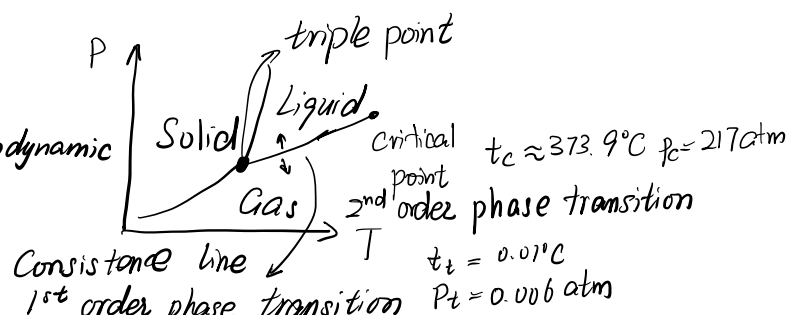 triple point
P
Liquid
Solid
dynamic
critical
point
t_c ≈ 373.9°C P_c = 217atm
Gas
2nd order phase transition
T
t_t = 0.01°C
Consistance line
1st order phase transition
P_t = 0.006 atm